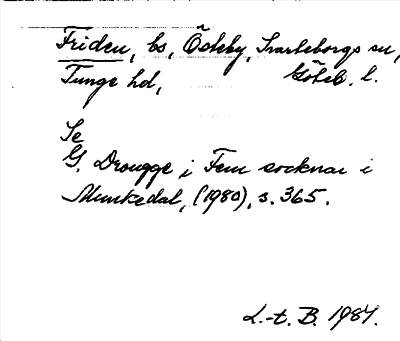 Friden, bs, Ödeby, Svarteborgs sn,
Tunge hd, Göteb. l.
Se
G. Drougge i Fem socknar i
Munkedal, (1980), s. 365.
L.-t. B. 1984.